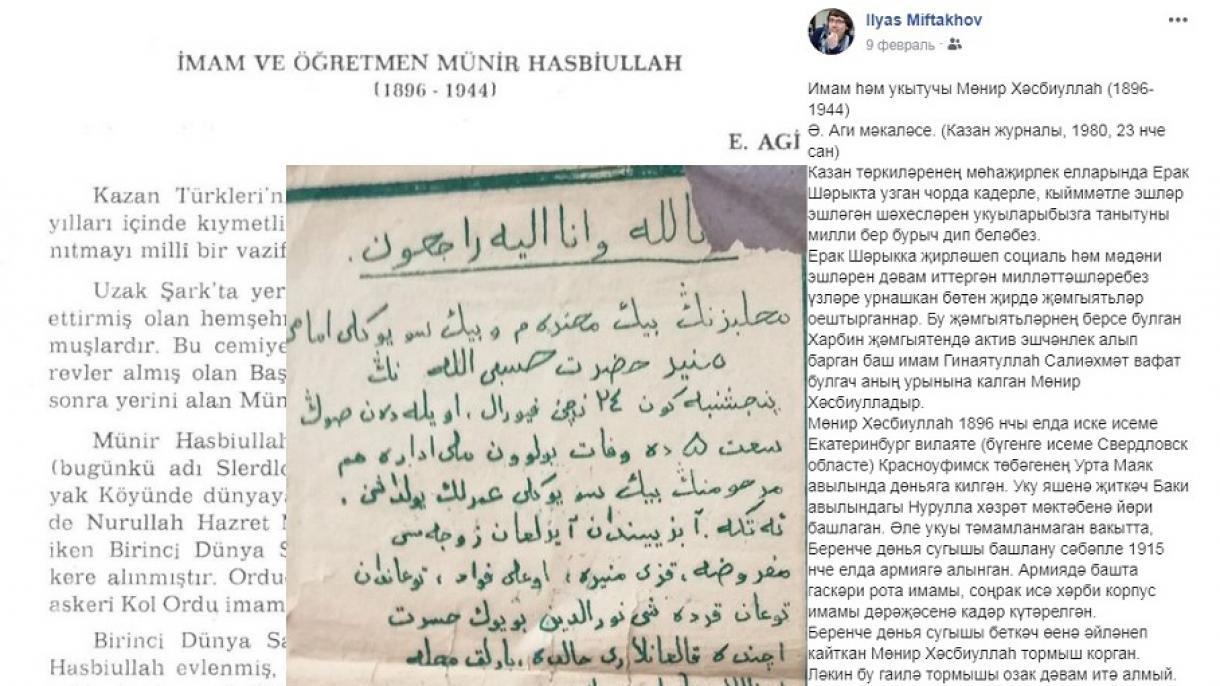 İMAM VE ÖĞRETMEN MÜNİR HASBİULLAH
(1896 - 1944)
E. AGİ
Kazan Türkleri'n
yılları içinde kıymetli
nıtmayı millî bir vazif
Uzak Şark'ta yer
ettirmiş olan hemşehr
muşlardır. Bu cemiye
revler almış olan Baş
sonra yerini alan Mün
Münir Hasbiullah
(bugünkü adı Slerdlo
yak Köyünde dünyaya
de Nurullah Hazret M
iken Birinci Dünya S
kere alınmıştır. Ordu
askeri Kol Ordu imam
Birinci Dünya Sa
Hasbiullah evlenmiş,
لله وانا اليه راجعون .
بيك محترم و بيك سويوكلى امامى
منير حضرت حسبى الله نڭ
پنجشنبه كون ٢٤ نچى فيورال . اويله دن صوڭ
سعت ۵ ده وفات بولوون ملى اداره هم
مرحومنڭ بيك سويوكلى عمرلك يولداشى .
زوجه سى
مفروضه ، قزى منيره ، اوغلى فواد ، توغاندان
توغان قرده شى نورالدين بويوك حسرت
اچنده قالغانلارى حالده ، بارلق محله
Ilyas Miftakhov
9 февраль ·
Имам һәм укытучы Мөнир Хәсбиуллаһ (1896-
1944)
Ә. Аги мәкаләсе. (Казан журналы, 1980, 23 нче
сан)
Казан төркиләренең мөһаҗирлек елларында Ерак
Шәрыкта узган чорда кадерле, кыйммәтле эшләр
эшләгән шәхесләрен укуыларыбызга танытуны
милли бер бурыч дип беләбез.
Ерак Шәрыкка җирләшеп социаль һәм мәдәни
эшләрен дәвам иттергән милләттәшләребез
үзләре урнашкан бөтен җирдә җәмгыятьләр
оештырганнар. Бу җәмгыятьләрнең берсе булган
Харбин җәмгыятендә актив эшчәнлек алып
барган баш имам Гинаятуллаһ Салиәхмәт вафат
булгач аның урынына калган Мөнир
Хәсбиулладыр.
Мөнир Хәсбиуллаһ 1896 нчы елда иске исеме
Екатеринбург вилаяте (бүгенге исеме Свердловск
областе) Красноуфимск төбәгенең Урта Маяк
авылында дөньяга килгән. Уку яшенә җиткәч Баки
авылындагы Нурулла хәзрәт мәктәбенә йөри
башлаган. Әле укуы тәмамланмаган вакытта,
Беренче дөнья сугышы башлану сәбәпле 1915
нче елда армиягә алынган. Армиядә башта
гаскәри рота имамы, соңрак исә хәрби корпус
имамы дәрәҗәсенә кадәр күтәрелгән.
Беренче дөнья сугышы беткәч өенә әйләнеп
кайткан Мөнир Хәсбиуллаһ тормыш корган.
Ләкин бу гаилә тормышы озак дәвам итә алмый.